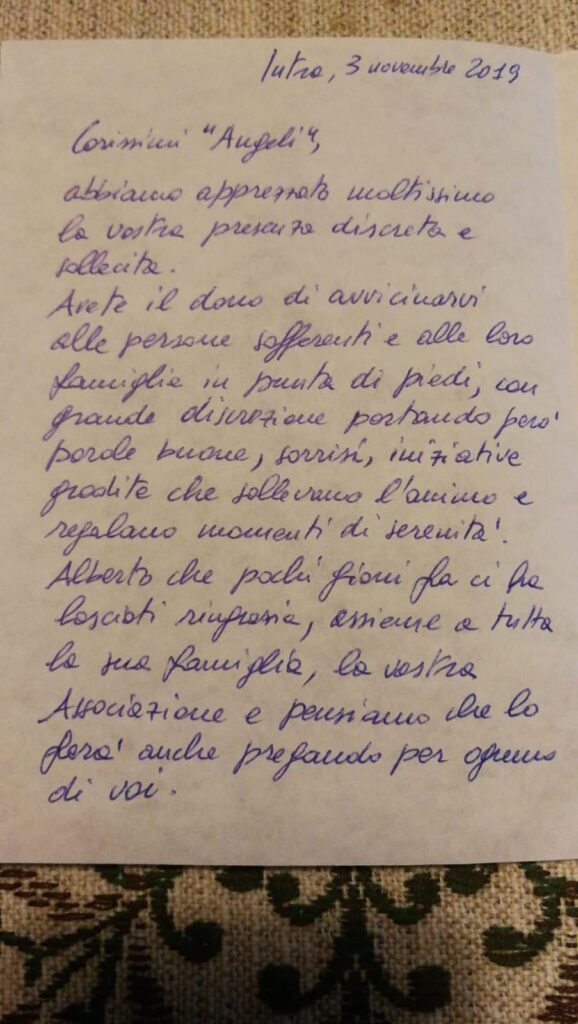 Intra, 3 novembre 2019
Carissimi "Angeli",
abbiamo apprezzato moltissimo
la vostra presenza discreta e
sollecita.
Avete il dono di avvicinarvi
alle persone sofferenti e alle loro
famiglie in punta di piedi, con
grande discrezione portando però
parole buone, sorrisi, iniziative
gradite che sollevano l'animo e
regalano momenti di serenità.
Alberto che pochi giorni fa ci ha
lasciati ringrazia, assieme a tutta
la sua famiglia, la vostra
Associazione e pensiamo che lo
farà anche pregando per ognuno
di voi.